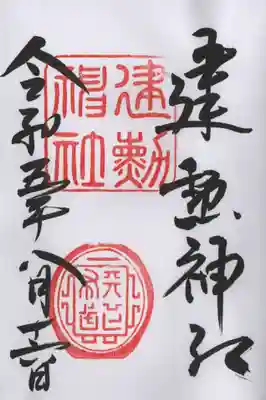 建勲神社
建勲
神社
令和五年八月日